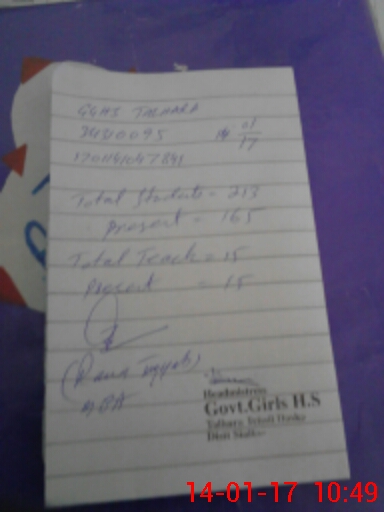 GGHS TALHARA
34510095
01/17
Total Students = 213
Present = 165
Total Teach = 15
Present = 15
(Rana Tayyab)
MEA
Headmistress
Govt.Girls H.S
Talhara Tehsil Daska
Distt
14-01-17 10:49